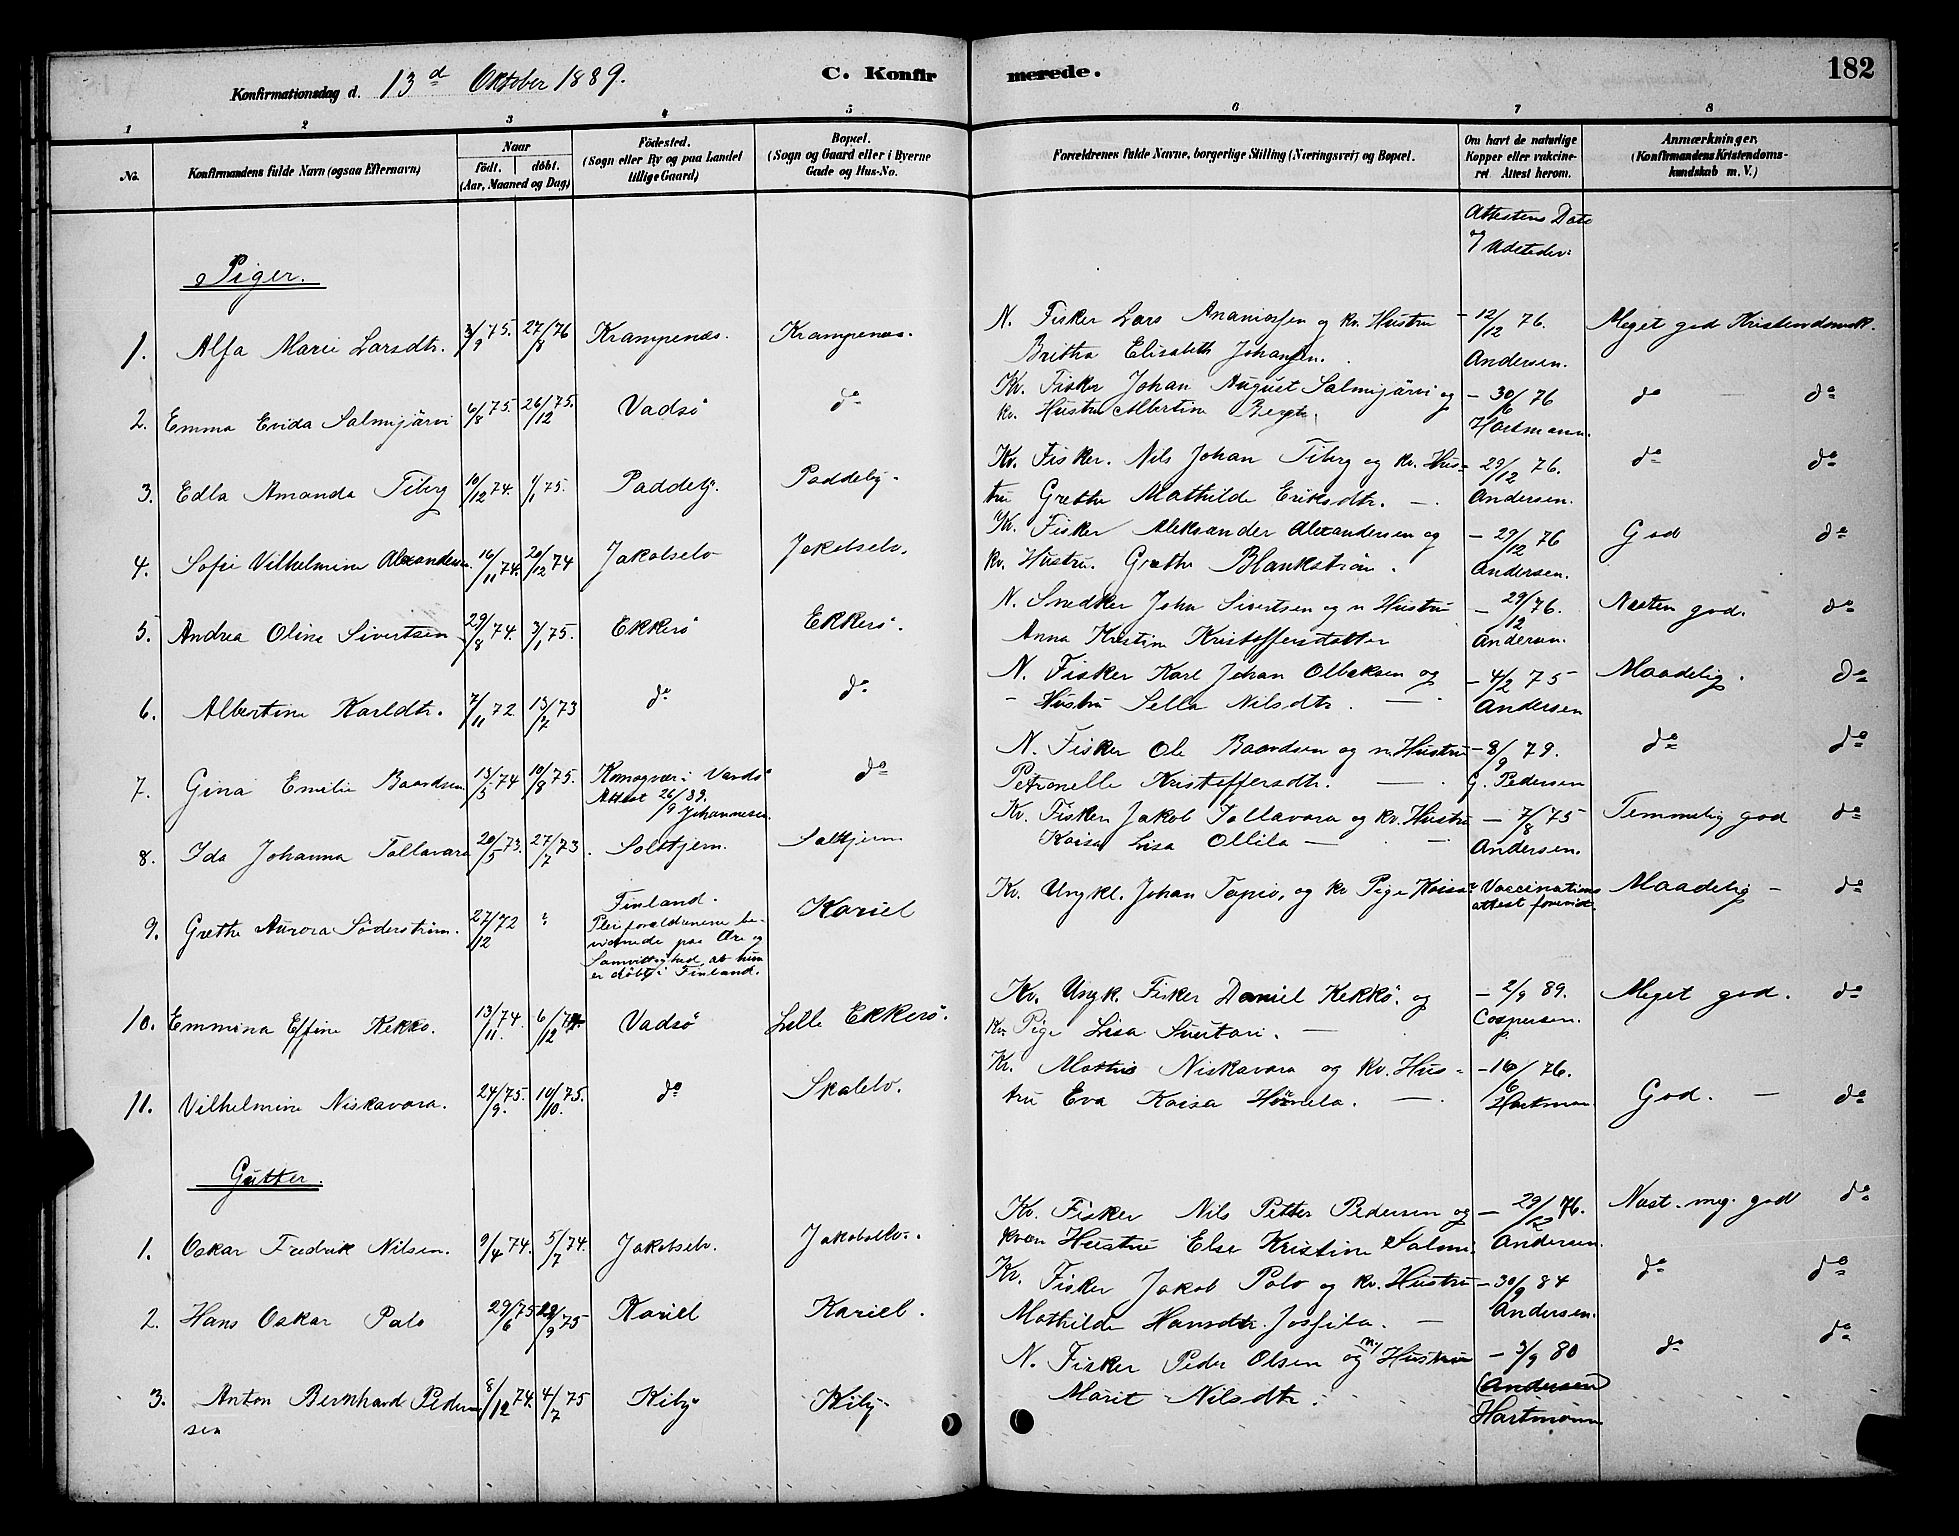 182
Konfirmationsdag d. 13d Oktober 1889.
C. Konfirmerede.
1 2 3 4 5 6 7 8
No.
Konfirmandens fulde Navn (ogsaa Efternavn)
Naar
født. døbt.
(Aar, Maaned og Dag)
Fødested.
(Sogn eller By og paa Landet
tillige Gaard)
Bopæl.
(Sogn og Gaard eller i Byerne
Gade og Hus-No.
Forældrenes fulde Navne, borgerlige Stilling (Næringsvei) og Bopæl.
Om havt de naturlige
Kopper eller vakcine-
ret. Attest herom.
Anmærkninger,
(Konfirmandens Kristendoms-
kundskab m. V.)
Attestens Dato
Piger.
1. Alfa Marie Larsdtr. 3/9 75. 27/8 76 Krampenæs. Krampenæs. N. Fisker Lars Ananiassen og kv. Hustru - 12/12 76. Meget god Kristendomsk.
Britha Elisabeth Johansen. Andersen.
2. Emma Evida Salmijärvi 6/8 75. 26/12 75. Vadsö do Kv. Fisker Johan August Salmijärvi og - 30/6 76 do - do
kv. Hustru Albertine Hartmann.
3. Edla Amanda Tiberg 10/12 74. 1/1 75. Paddeby. Paddeby. Kv. Fisker. Nils Johan Tiberg og kv. Hus- 29/12 76. do do
tru Grethe Mathilde Eriksdtr. — Andersen.
4. Sofie Vilhelmine Alexandersen 16/11 74. 20/12 74 Jakobselv Jakobselv. Kv. Fisker Aleksander Alexandersen og - 29/12 76 God do
kv. Hustru. Grethe Blankström. Andersen.
5. Andrea Olina Sivertsen 29/8 74. 3/1 75. Ekkerö Ekkerö. N. Snedker John Sivertsen og n Hustru - 29/12 76. Næsten god. do
Anna Kristine Kristoffersdatter Andersen.
6. Albertine Karldtr. 7/11 72 13/7 73 do do N. Fisker Karl Johan Olbeksen og - 4/2 75 Maadelig. do
- Hustru Sella Nilsdtr. — Andersen
7. Gina Emilie Baardsen 13/5 74 10/8 75. Komagvær i Vardö do N. Fisker Ole Baardsen og n. Hustru - 8/9 79. do do
Attest 26/9 89. Johannesen. Petronelle Kristoffersdtr. — G. Pedersen
8. Ida Johanna Tallavara 20/5 73. 27/7 73. Saltkjern. Saltkjern Kv. Fisker Jakob Tallavara og kv. Hustru - 7/8 75 Temmelig god do
Kaisa Lisa Ollila — Andersen.
9. Grethe Aurora Söderström. 27/12 72 " Finland. Kariel Kv. Ungkl. Johan Tapio, og kv Pige Kaisa Vaccinations Maadelig - do
Pleieforældrene be-
vidnede paa Ære og
Samvittighed, at hun
er döbt i Finland.
10. Emmina Effine Kekko. 13/11 74. 6/12 74 Vadsö Lille Ekkerö. Kv. Ungk. Fisker Daniel Kekkö. og - 2/9 89. Meget god. do
kv. Pige Lisa Suvtari. — Caspersen.
11. Vilhelmine Niskavara. 24/9 75. 10/10 75. do Skalelv. Kv. Mathis Niskavara og kv. Hus- - 16/6 76. God. - do
tru Eva Kaisa — Hartman
Gutter.
1. Oskar Fredrik Nilsen. 9/4 74. 5/7 74. Jakobselv. Jakobselv. Kv. Fisker Nils Petter Pedersen og - 29/12 76. Næst. meg. god do
kvæn Hustru Else Kristine Salmi. Andersen.
2. Hans Oskar Palo 29/6 75 9/75 Kariel Kariel. Kv. Fisker Jakob Palo og kv. Hustru - 30/9 84 do do
Mathilde Hansdtr. — Andersen.
3. Anton Bernhard Peder- 8/12 74. 4/7 75 Kiby Kiby N. Fisker Peder Olsen og n/ Hustru - 3/9 80 do do
sen Marit Nilsdtr. (Andersen)
Hartmann